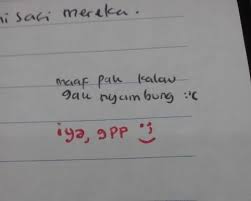 ni saci mereka.
maaf pak kalau
gak nyambung :'(
iya, gpp :)